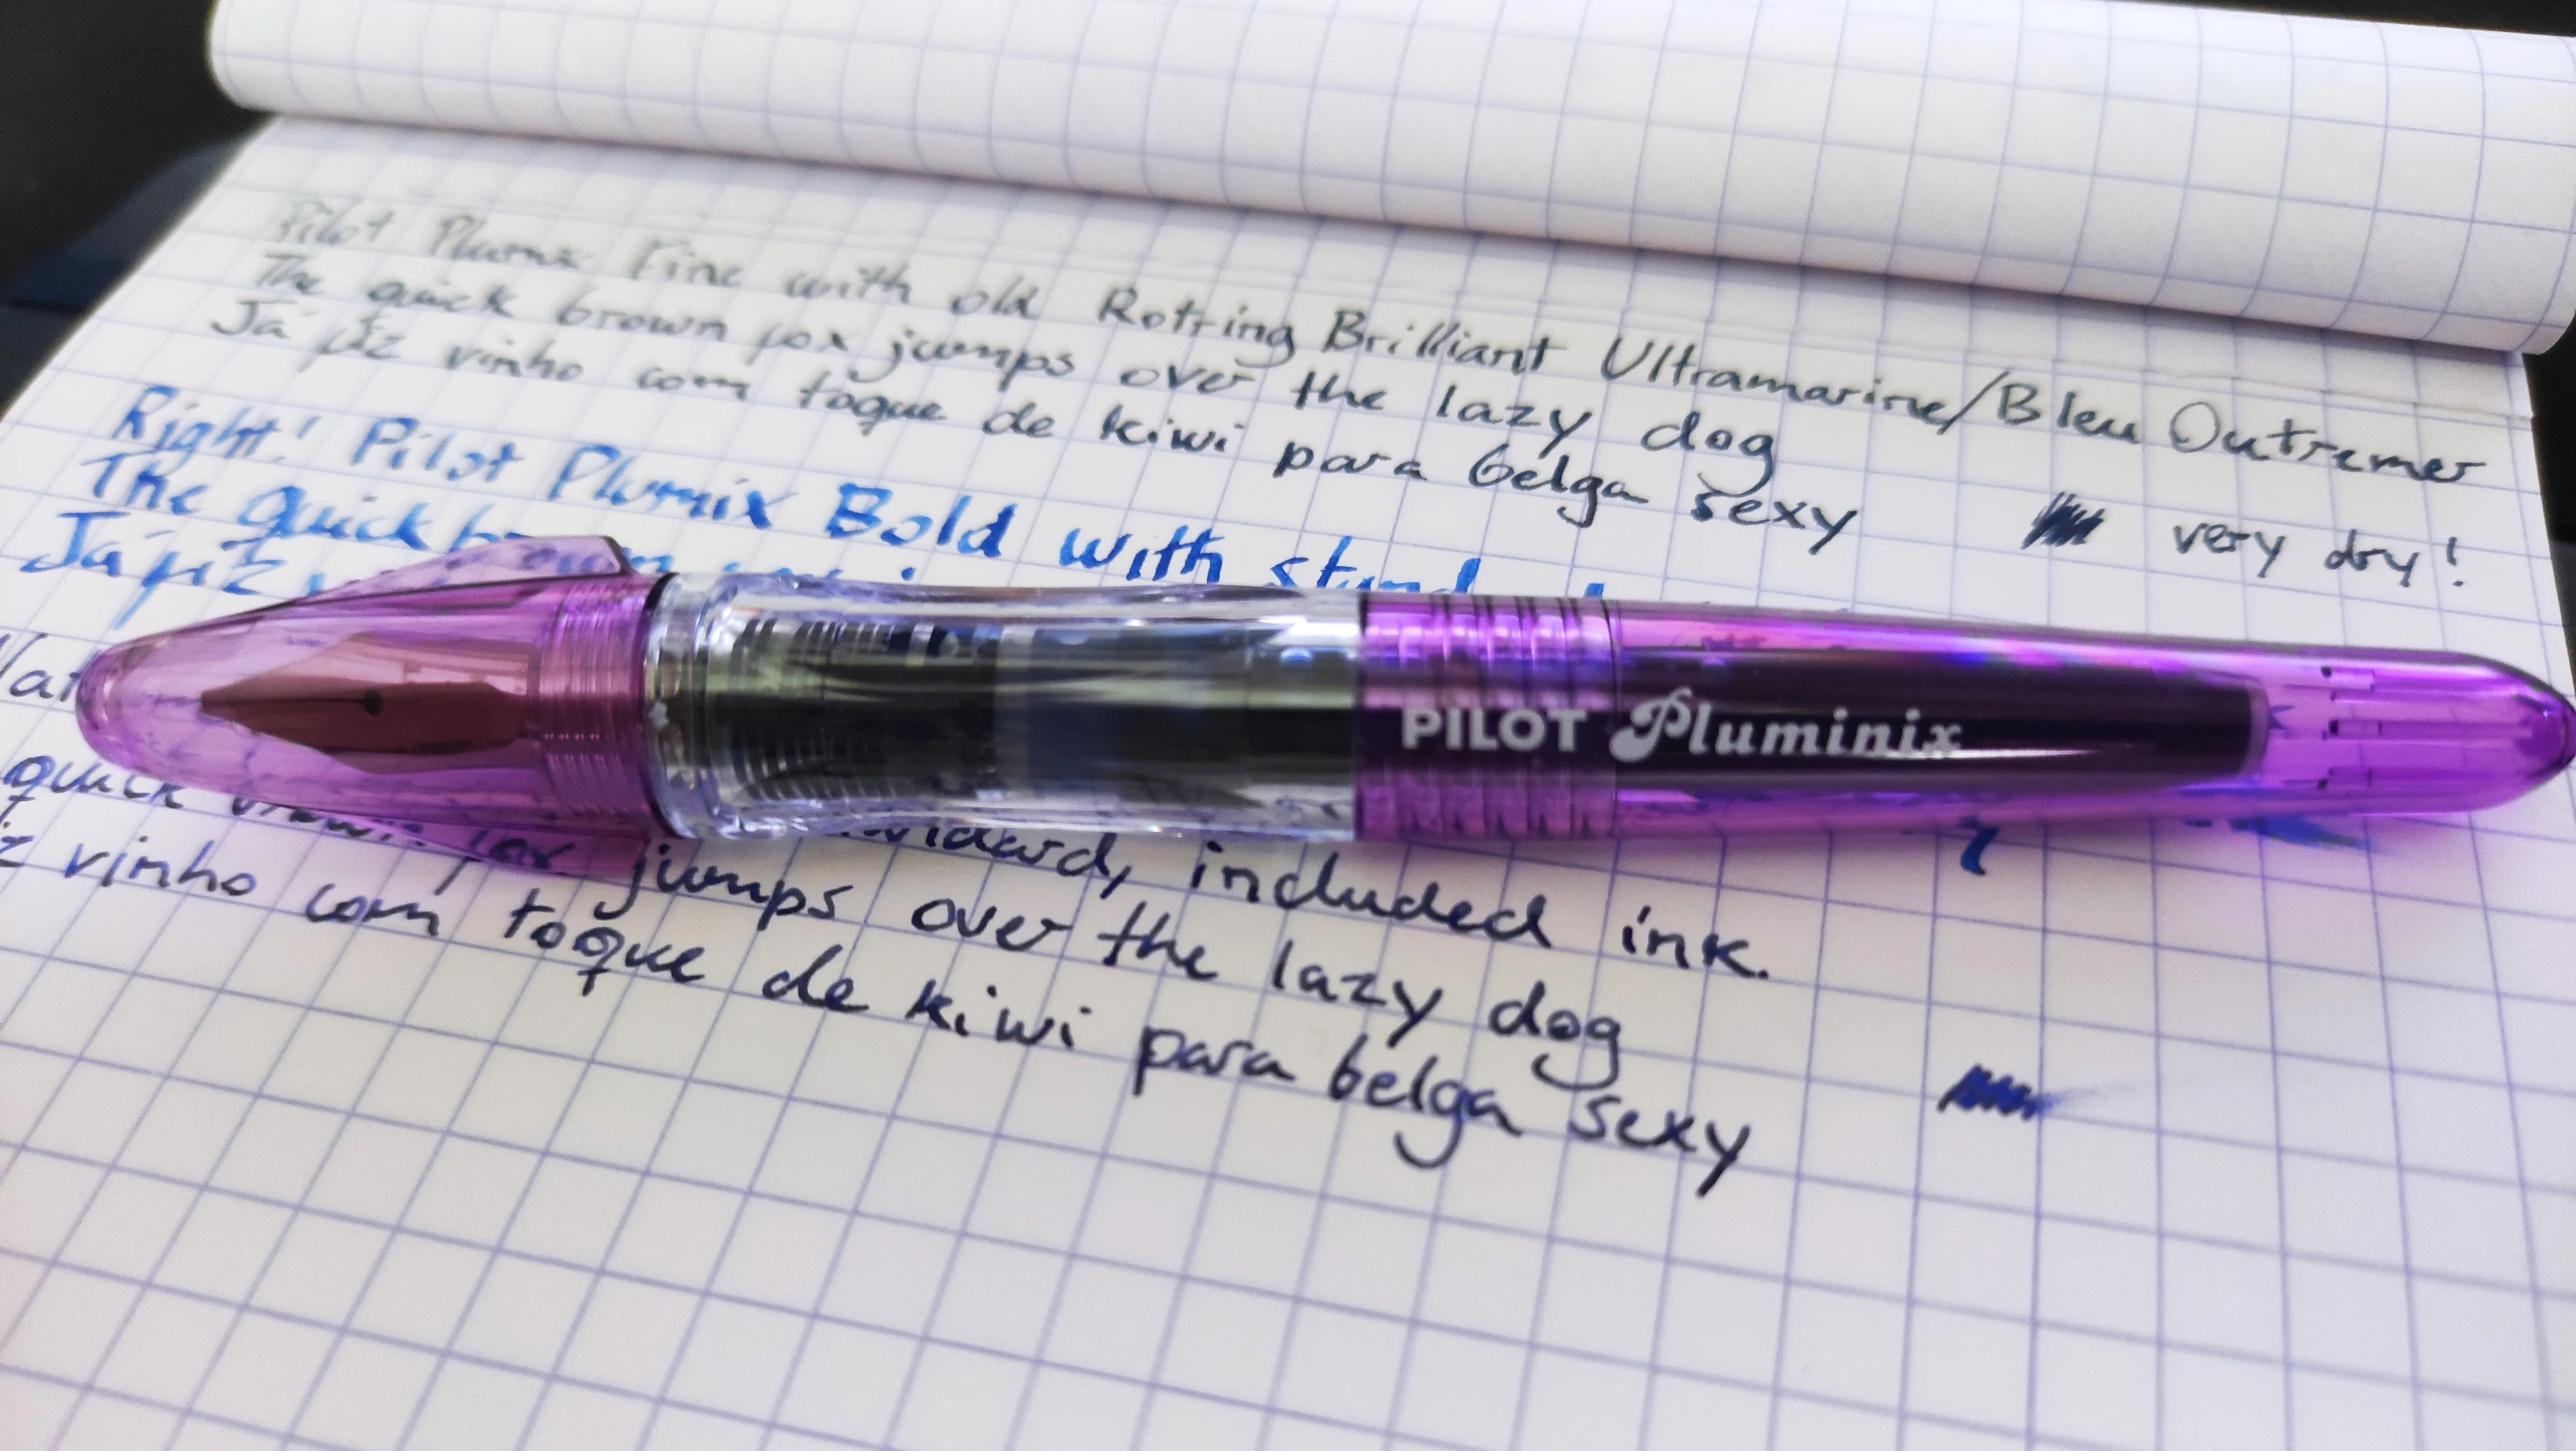 Pilot Plumix Fine with old Rotring Brilliant Ultramarine/Bleu Outremer
The quick brown fox jumps over the lazy dog
Já fiz vinho com toque de kiwi para belga sexy very dry!
Right! Pilot Plumix Bold with
The quick brown
Já fiz
PILOT Pluminix
included ink.
quick brown fox jumps over the lazy dog
vinho com toque de kiwi para belga sexy